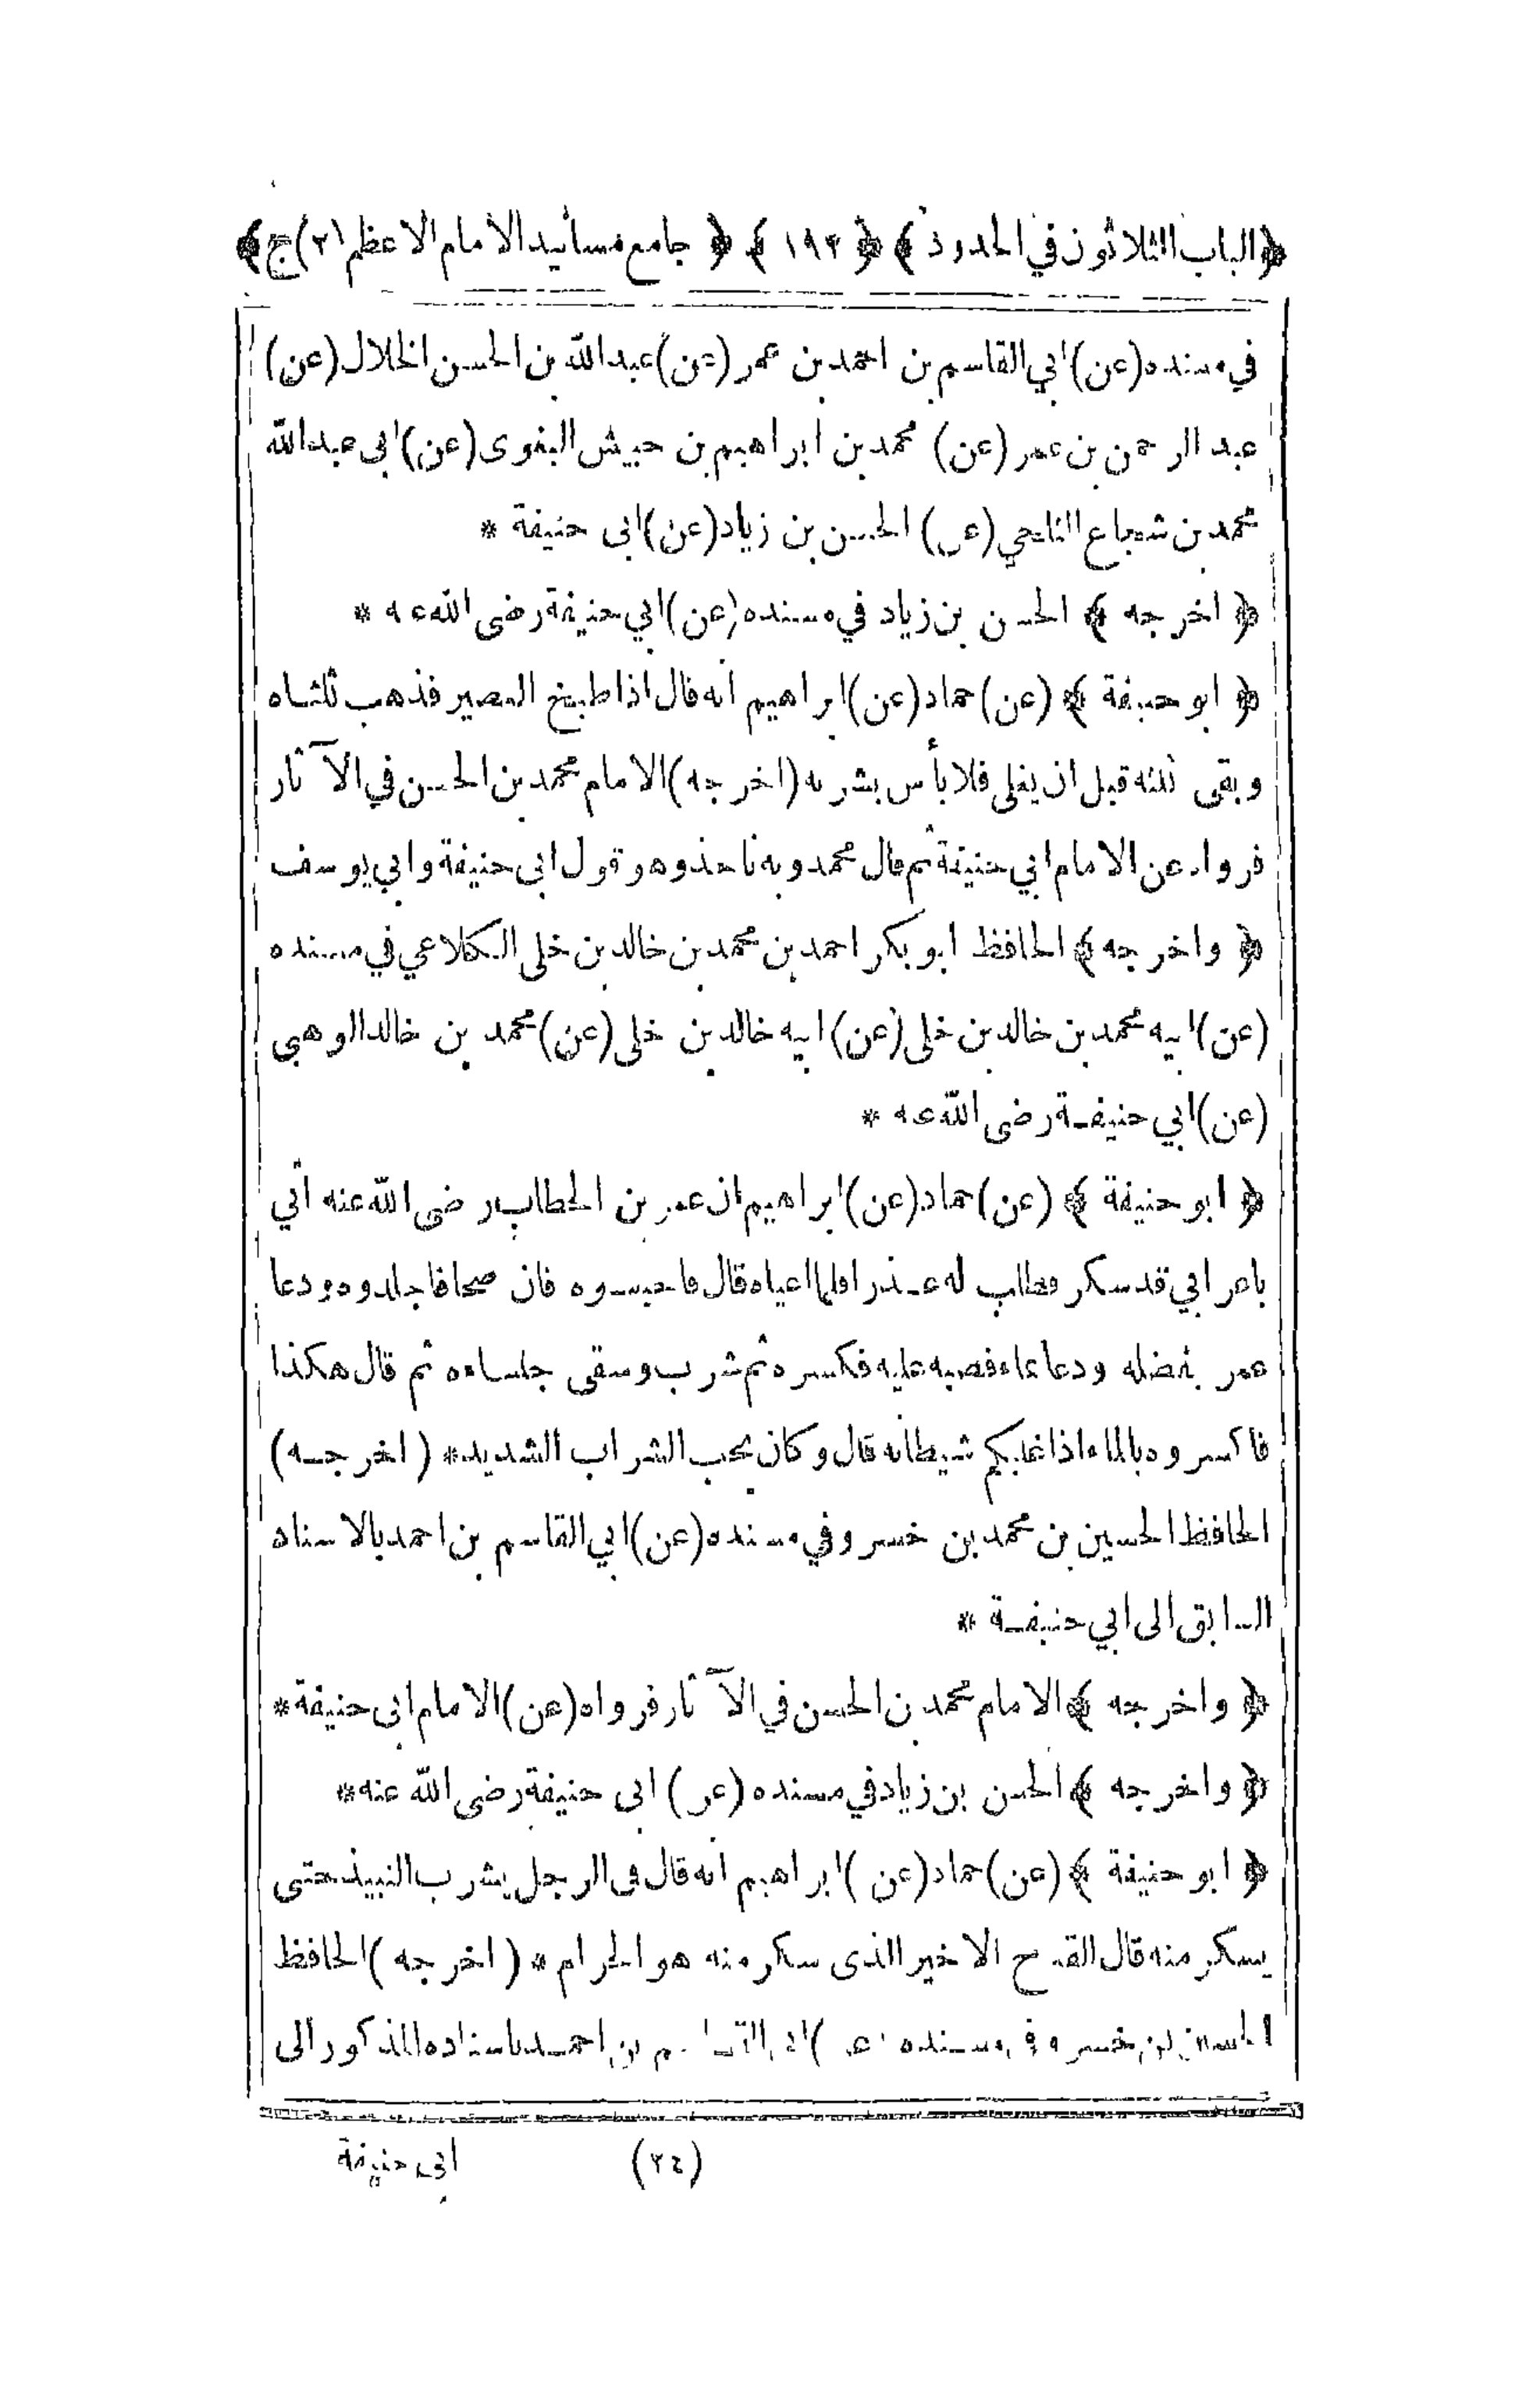 ﴿ الباب الثلاثون في الحدود ﴾ ﴿ ١٩٢ ﴾ ﴿ جامع مسانيد الامام الاعظم (٢) ج ﴾
في مسنده (عن) ابي القاسم بن احمد بن عمر (عن) عبد الله بن الحسن الخلال (عن)
عبد الرحمن بن عمر (عن) محمد بن ابراهيم بن حبيش البغوى (عن) ابى عبد الله
محمد بن شجاع الثلجي (عن) الحسن بن زياد (عن) ابى حنيفة *
﴿ اخرجه ﴾ الحسن بن زياد في مسنده (عن) ابي حنيفة رضى الله عنه *
﴿ ابو حنيفة ﴾ (عن) حماد (عن) ابراهيم انه قال اذا طبخ العصير فذهب ثلثاه
وبقى ثلثه قبل ان يغلى فلا بأس بشربه (اخرجه) الامام محمد بن الحسن في الآثار
فرواه عن الامام ابي حنيفة ثم قال محمد وبه ناخذ وهو قول ابى حنيفة وابي يوسف
﴿ واخرجه ﴾ الحافظ ابو بكر احمد بن محمد بن خالد بن خلى الكلاعي في مسنده
(عن) ابيه محمد بن خالد بن خلى (عن) ابيه خالد بن خلى (عن) محمد بن خالد الوهبي
(عن) ابي حنيفة رضى الله عنه *
﴿ ابو حنيفة ﴾ (عن) حماد (عن) ابراهيم ان عمر بن الخطاب رضى الله عنه أتي
باعرابي قد سكر فطلب له عذرا فلما اعياه قال فاحبسوه فان صحا فاجلدوه ودعا
عمر بفضله ودعا بماء فصبه عليه فكسره ثم شرب وسقى جلساءه ثم قال هكذا
فاكسروه بالماء اذا غلبكم شيطانه قال وكان يحب الشراب الشديد * (اخرجه)
الحافظ الحسين بن محمد بن خسرو في مسنده (عن) ابي القاسم بن احمد بالاسناد
السابق الى ابي حنيفة *
﴿ واخرجه ﴾ الامام محمد بن الحسن في الآثار فرواه (عن) الامام ابى حنيفة *
﴿ واخرجه ﴾ الحسن بن زياد في مسنده (عن) ابى حنيفة رضى الله عنه *
﴿ ابو حنيفة ﴾ (عن) حماد (عن) ابراهيم انه قال فى الرجل يشرب النبيذ حتى
يسكر منه قال القدح الاخير الذى سكر منه هو الحرام * (اخرجه) الحافظ
الحسين بن خسرو في مسنده (عن) ابي القاسم بن احمد باسناده المذكور الى
(٢٤) ابي حنيفة